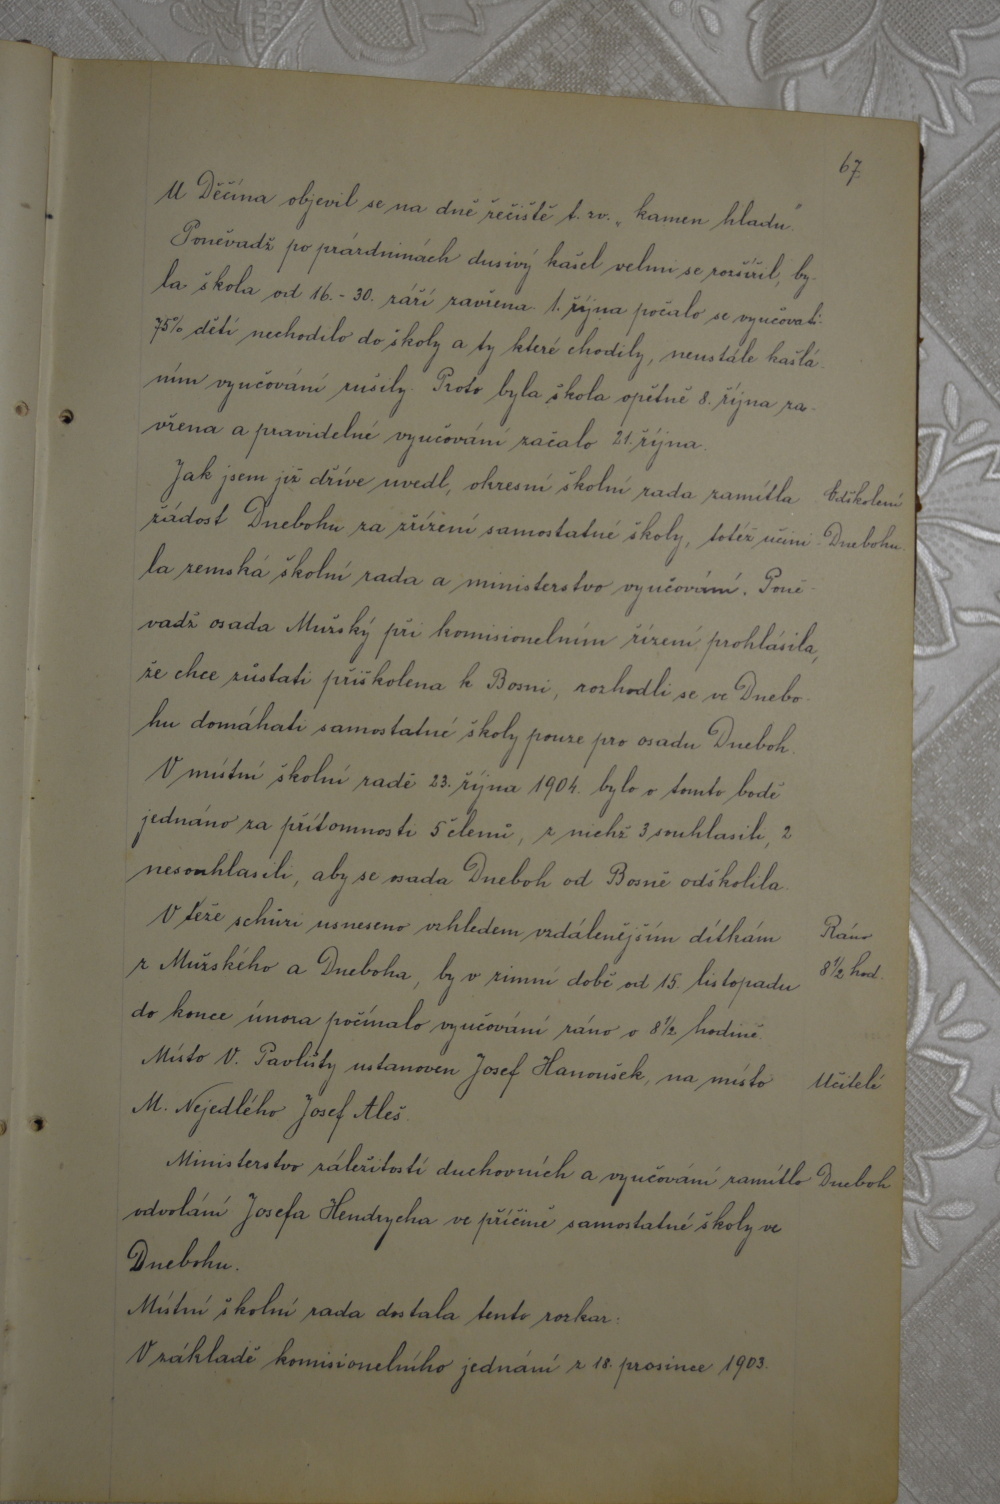 67.
U Děčína objevil se na dně řečiště t. zv. „kamen hladu"
Poněvadž po prázdninách dusivý kašel velmi se rozšířil, by-
la škola od 16.-30. září zavřena. 1. října počalo se vyučovati.
75% dětí nechodilo do školy a ty které chodily, neustále kašlá-
ním vyučování rušily. Proto byla škola opětně 8. října za-
vřena a pravidelné vyučování začalo 21. října.
Jak jsem již dříve uvedl, okresní školní rada zamítla Odškolení
žádost Dnebohu za zřízení samostatné školy, totéž učini- Dnebohu.
la zemská školní rada a ministerstvo vyučování. Poně-
vadž osada Mužský při komisionelním řízení prohlásila,
že chce zůstati přiškolena k Bosni, rozhodli se ve Dnebo-
hu domáhati samostatné školy pouze pro osadu Dneboh.
V místní školní radě 23. října 1904. bylo o tomto bodě
jednáno za přítomnosti 5 členů, z nichž 3 souhlasili, 2
nesouhlasili, aby se osada Dneboh od Bosně odškolila.
V téže schůzi usneseno vzhledem vzdálenějším dítkám Ráno
z Mužského a Dneboha, by v zimní době od 15. listopadu 8½ hod.
do konce února počínalo vyučování ráno o 8½ hodině.
Místo V. Pavlišty ustanoven Josef Hanoušek, na místo Učitelé
M. Nejedlého Josef Aleš.
Ministerstvo záležitostí duchovních a vyučování zamítlo Dneboh
odvolání Josefa Hendrycha ve příčině samostatné školy ve
Dnebohu.
Místní školní rada dostala tento rozkaz:
V základě komisionelního jednání z 18. prosince 1903.